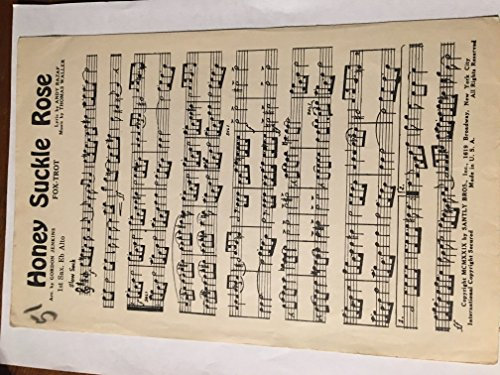 5
Honey Suckle Rose
FOX-TROT
Arr. by GORDON JENKINS
1st Sax. Eb Alto
by ANDY RAZAF
Music by THOMAS WALLER
Copyright MCMXXIX by SANTLY BROS., Inc., 1619 Broadway, New York City
International Copyright Secured Made in U. S. A. All Rights Reserved